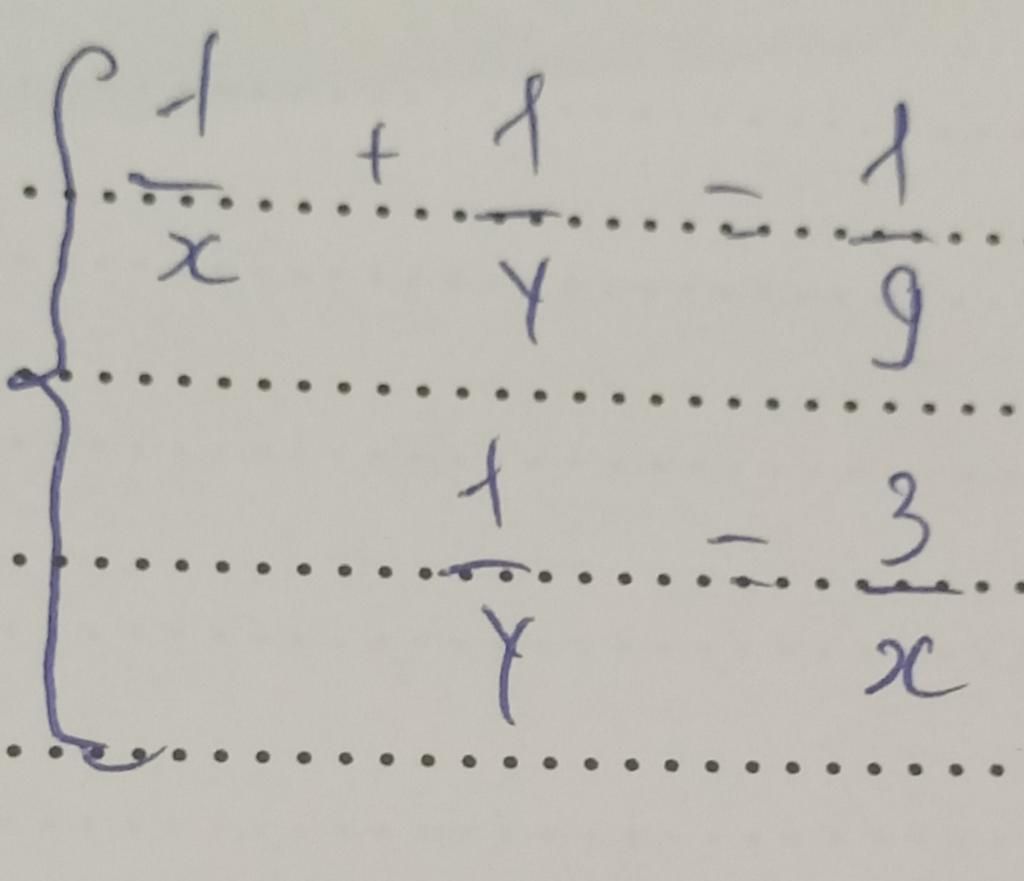 1/x + 1/y = 1/9
1/y = 3/x